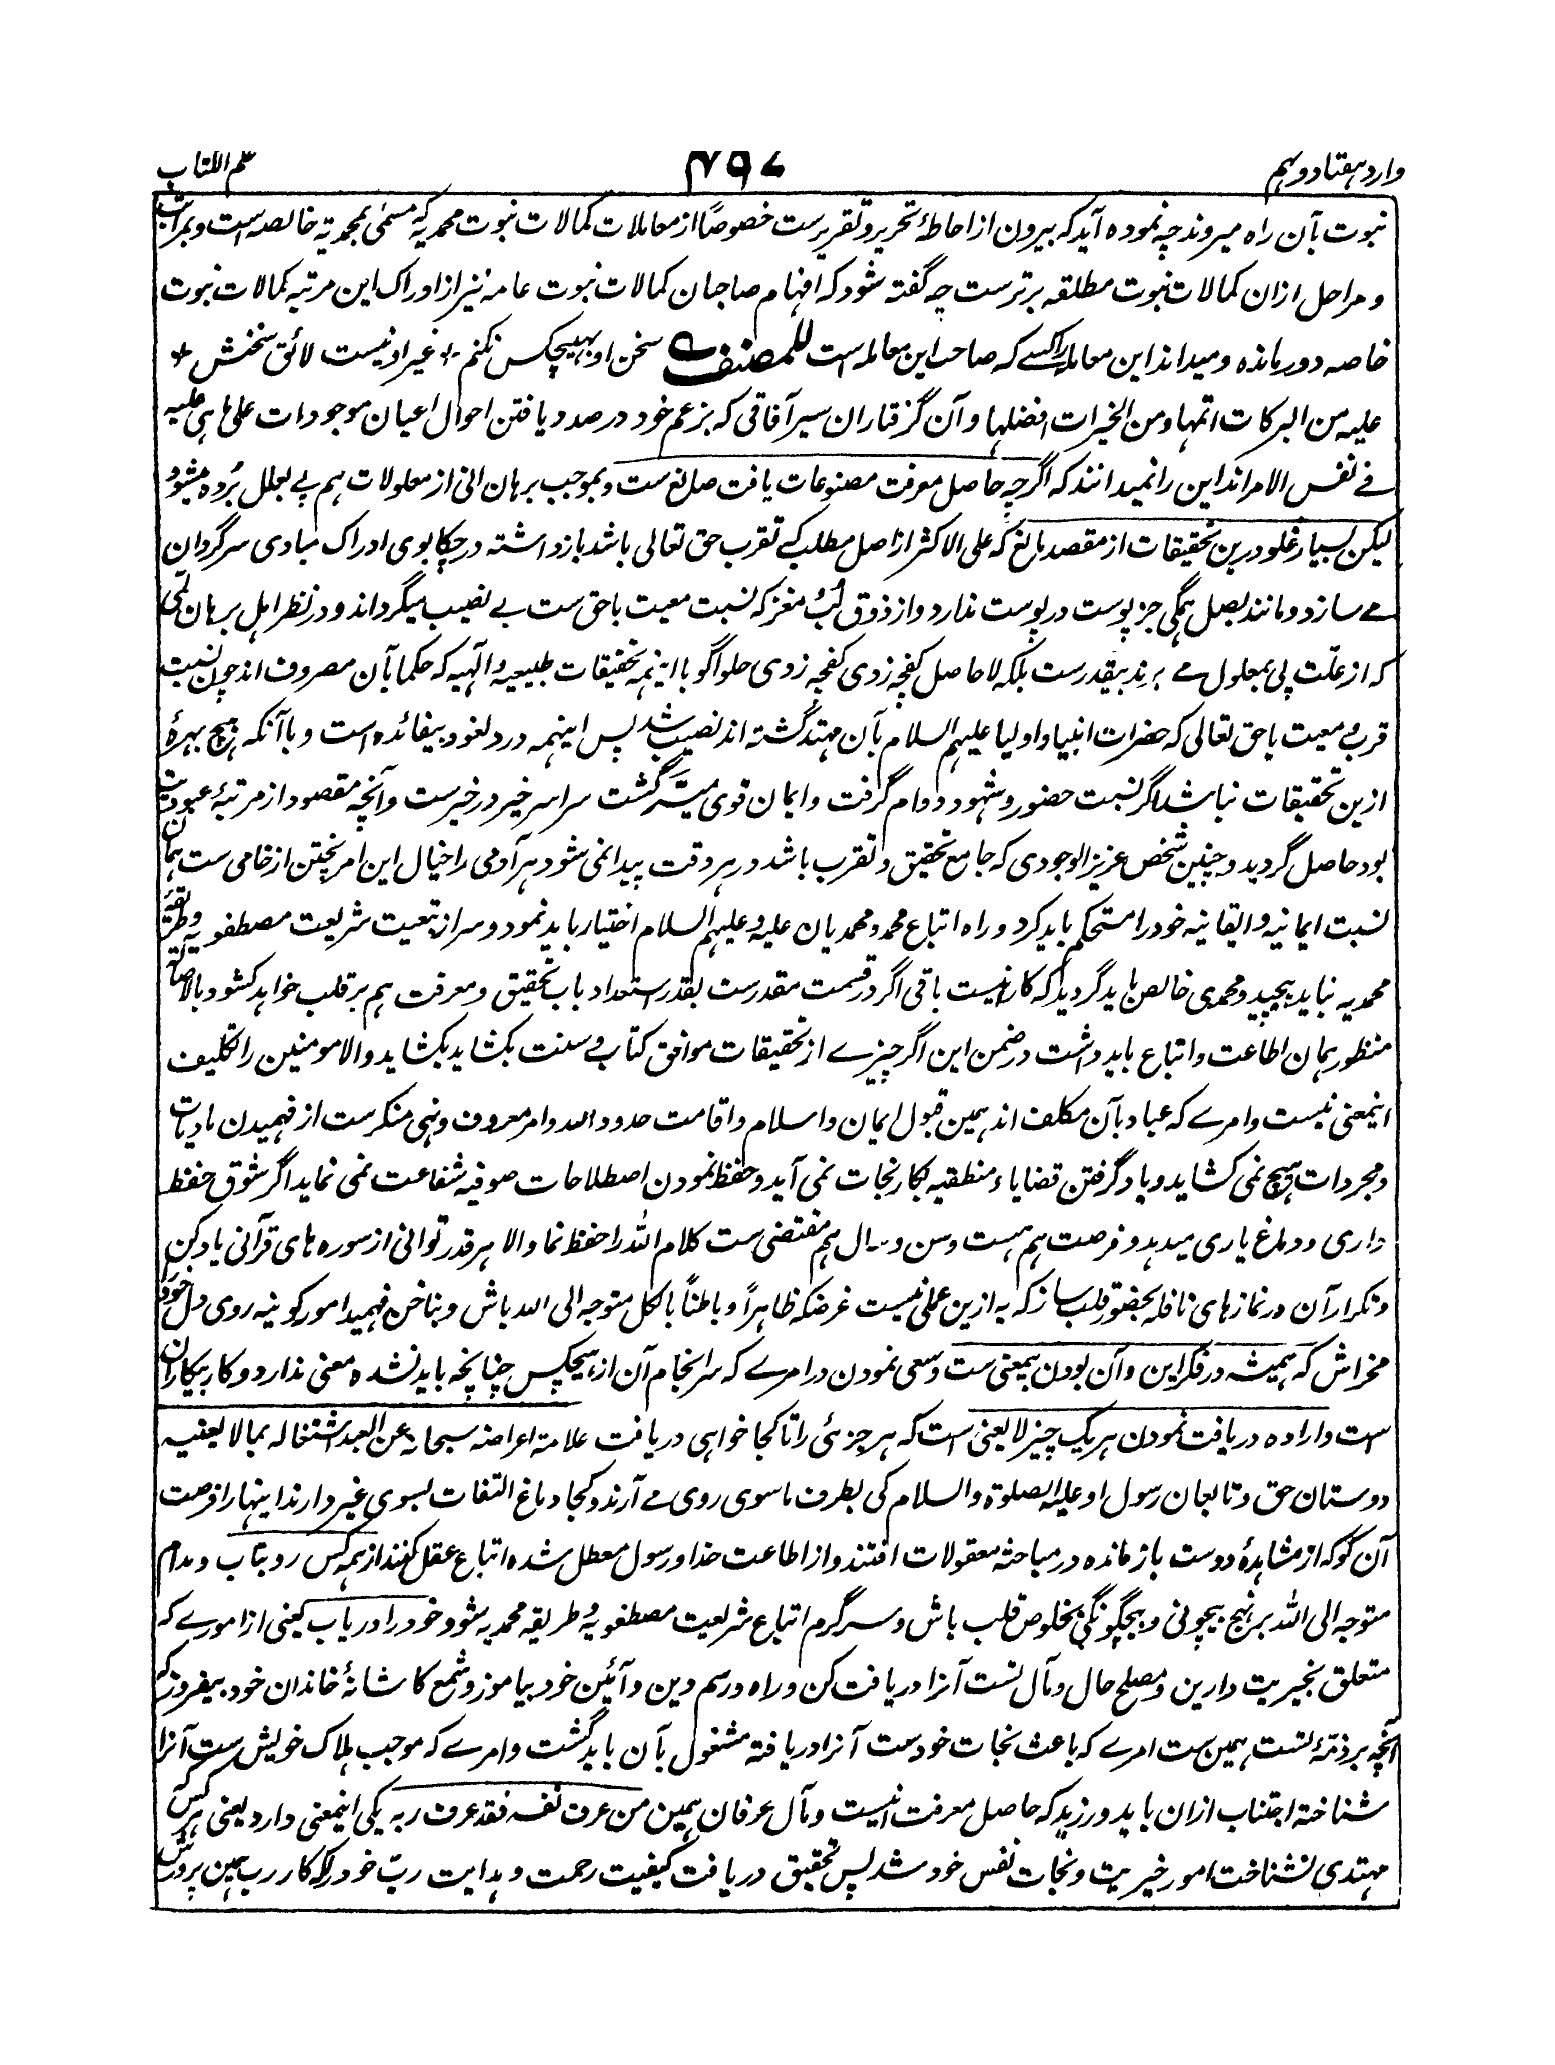 وارد هفتاد و نهم
۴۹۷
علم الکتاب
نبوت بآن راه میروند چه نموده آید که بیرون از احاطهٔ تحریر و تقریرست خصوصاً از معاملات کمالات نبوت محمدیه که مسمیٰ بمحمدیهٔ خالصه است و بمراتب
و مراحل ازان کمالات نبوت مطلقه برترست چه گفته شود که افهام صاحبان کمالات نبوت عامه نیز از ادراک این مرتبه کمالات نبوت
خاصه دور مانده و میداند این معامله را کسے که صاحب این معامله است للمصنف سخن او بهیچکس نکنم + غیر او نیست لائق سخنش +
علیه من البرکات اتمها و من الخیرات افضلها و آن گرفتاران سیر آفاقی که بزعم خود در صدد یافتن احوال اعیان موجودات علی ماهی علیه
فے نفس الامر اند این را نمیدانند که اگرچه حاصل معرفت مصنوعات یافت صانع ست و بموجب برهان انی از معلولات هم پے بعلل برده میشود
لیکن بسیار غلو درین تحقیقات از مقصد مانع که علی الاکثر از اصل مطلب که تقرب حق تعالی باشد باز داشته در چکاپوی ادراک مبادی سرگردان
مے سازد و مانند بصل همگی جز پوست در پوست ندارد و از ذوق لب مغز که نسبت معیت باحق ست بے نصیب میگرداند و در نظر اهل برهان لمی
که از علت پی بمعلول مے برند بیقدرست بلکه لاحاصل کفچه زدی کفچه زدی حلوا گو با اینهمه تحقیقات طبیعیه و الٓهیه که حکما بآن مصروف اند چون نسبت
قرب و معیت باحق تعالی که حضرات انبیا و اولیا علیهم السلام بآن مهتد گشته اند نصیب نشد پس اینهمه درد لغو و بیفائده است و باآنکه هیچ بهرهٔ
ازین تحقیقات نباشد اگر نسبت حضور و شهود دوام گرفت و ایمان قوی میسر گشت سراسر خیر در خیرست و آنچه مقصود از مرتبهٔ عبودیت
بود حاصل گردید و چنین شخص عزیز الوجودی که جامع تحقیق و تقرب باشد در هر وقت پیدا نمی شود هر آدمی را خیال این امر پختن از خامی ست همان
نسبت ایمانیه و ایقانیه خود را مستحکم باید کرد و راه اتباع محمد و محمدیان علیه و علیهم السلام اختیار باید نمود و سر از تبعیت شریعت مصطفویه و طریقهٔ
محمدیه نباید پیچید و محمدی خالص باید گردید که کار اینست باقی اگر در قسمت مقدرست بقدر استعداد باب تحقیق و معرفت هم بر قلب خواهد کشود بالاصالة
منظور همان اطاعت و اتباع باید داشت در ضمن این اگر چیزے از تحقیقات موافق کتاب و سنت بکشاید بکشاید والا مومنین را تکلیف
اینمعنی نیست و امرے که عباد بآن مکلف اند همین قبول ایمان و اسلام و اقامت حدود الله و امر معروف و نهی منکرست از فهمیدن مادیات
و مجردات هیچ نمی کشاید و یاد گرفتن قضایاء منطقیه بکار نجات نمی آید و حفظ نمودن اصطلاحات صوفیه شفاعت نمی نماید اگر شوق حفظ
داری و دماغ یاری میدهد و فرصت هم هست و سن و سال هم مقتضی ست کلام الله را حفظ نما والا هر قدر توانی از سوره های قرآنی یاد کن
و تکرار آن در نمازهای نافله بحضور قلب ساز که به ازین عملی نیست غرضکه ظاهراً و باطناً بالکل متوجه الی الله باش و بناخن فهمید امور کونیه روی دل خود
مخراش که همیشه در فکر این و آن بودن بیمعنی ست و سعی نمودن در امرے که سرانجام آن از هیچکس چنانچه باید نشده معنی ندارد و کار بیکاران
است و اراده دریافت نمودن هر یک چیز لایعنی است که هر جزئی را تا کجا خواهی دریافت علامة اعراضه سبحانه عن العبد اشتغاله بمالایعنیه
دوستان حق و تابعان رسول او علیه الصلوة والسلام کی بطرف ماسوی روی مے آرند و کجا دماغ التفات بسوی غیر دارند اینها را فرصت
آن کو که از مشاهدهٔ دوست باز مانده در مباحثه معقولات افتند و از اطاعت خدا و رسول معطل شده اتباع عقل کنند از همه کس رو بتاب و مدام
متوجه الی الله بر نهج بیچونی و بیچگونگی بخلوص قلب باش و سرگرم اتباع شریعت مصطفویه و طریقه محمدیه شو و خود را دریاب یعنی از امورے که
متعلق بخیریت دارین و مصلح حال و مآل تست آنرا دریافت کن و راه و رسم دین و آئین خود بیاموز و شمع کاشانهٔ خاندان خود بیفروز که
آنچه بر ذمهٔ تست همین ست امرے که باعث نجات خودست آنرا دریافته مشغول بآن باید گشت و امرے که موجب هلاک خویش ست آنرا
شناخته اجتناب ازان باید ورزید که حاصل معرفت اینست و مآل عرفان همین من عرف نفسه فقد عرف ربه یکی اینمعنی دارد یعنی هر کس
مهتدی بشناخت امور خیریت و نجات نفس خود شد پس بتحقیق دریافت کیفیت رحمت و هدایت رب خود را که کار رب همین پرورش